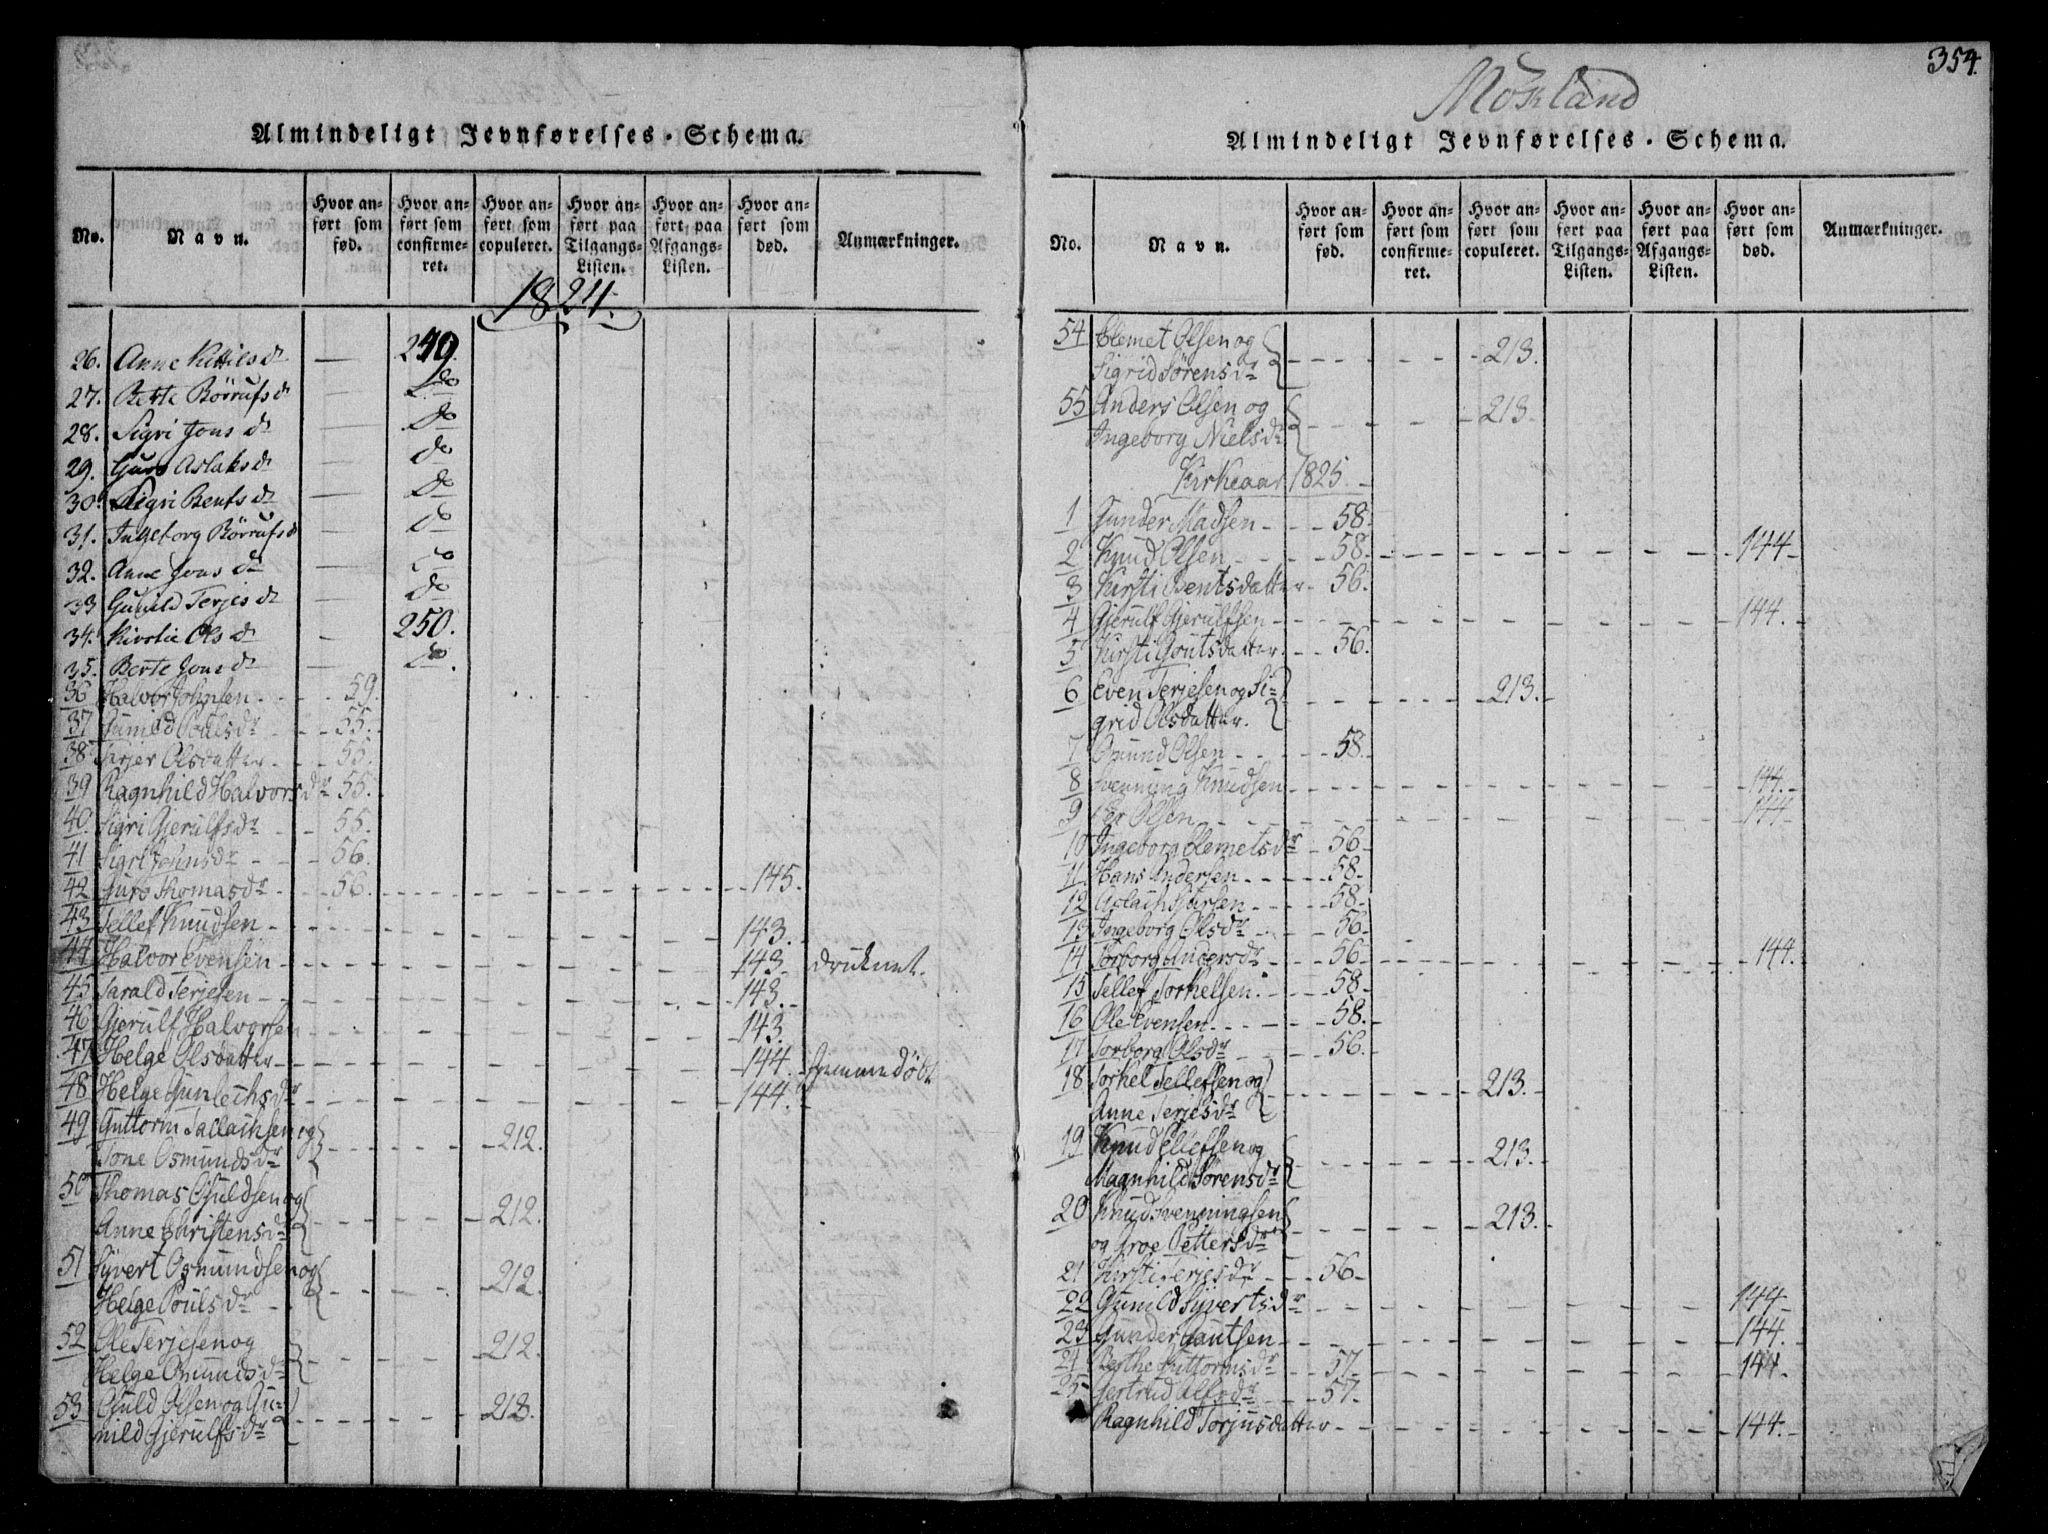 Almindeligt Jevnførelses-Schema.
No.
Navn.
Hvor anført som fød.
Hvor anført som confirmeret.
Hvor anført som copuleret.
Hvor anført paa Tilgangs-Listen.
Hvor anført paa Afgangs-Listen.
Hvor anført som død.
Anmærkninger.
1824.
26. Anne Kittilsdr — 249.
27. Berte Börrufsdr do
28. Sigri Jonsdr — do
29. Guro Aslaksdr — do
30. Sigri Bentsdr — do
31. Ingeborg Börrufsdr — do
32. Anne Jonsdr — do
33 Gunild Terjesdr — do
34. Kirstie Olsdr — 250.
35. Berte Jonsdr — do.
36 Halvor Johnsen - - 59.
37 Gunild Poulsdr - - 55.
38 Olsdatter - - 55.
39 Ragnhild Halvorsdr 55.
40. Sigri Gjerulfsdr - - 55.
41 Sigri Johnsdr - - 56.
42 Guro Thomasdr - - 56. - - 145.
43 Tellef Knudsen - - 143.
44 Halvor Evensen - - 143. druknet.
45 Tarald Terjesen - - 143.
46 Gjerulf Halvorsen - - 143.
47 Helge Olsdatter - - 144.
48 Helge Gunlechsdr - - 144.
49 Guttorm Sallachsen og
Tone Osmundsdr - - 212.
50 Thomas Guldsen og
Anne Christensdr - - 212.
51 Syvert Osmundsen og
Helge Poulsdr - - 212.
52 Ole Terjesen og
Helge Osmundsdr - - 212.
53 Guld Olsen og Gu-
nild Gjerulfsdr - - 213.
354.
Moseland
Almindeligt Jevnførelses-Schema.
No.
Navn.
Hvor anført som fød.
Hvor anført som confirmeret.
Hvor anført som copuleret.
Hvor anført paa Tilgangs-Listen.
Hvor anført paa Afgangs-Listen.
Hvor anført som død.
Anmærkninger.
54 Clemet Olsen og
Sigrid Sörensdr - - 213.
55 Anders Olsen og
Ingeborg Nielsdr - - 213.
Kirkeaar 1825.
1 Gunder Madsen - - 58.
2 Knud Olsen - - 58. - - 144
3 Kirsti Bentsdatter - 56.
4 Gjerulf Gjerulfsen - - 144.
5 Kirsti Goutsdatter - - 56.
6 Even Terjesen og Si-
grid Olsdatter. - - 213.
7 Osmund Olsen - - 58.
8 Svenning Knudsen - - 144.
9 Per Olsen - - 144
10 Ingeborg Clemetsdr - 56
11 Hans Andersen - - 58.
12 - - 58.
13 Ingeborg Olsdr - - 56
14 Torborg Andersdr - - 56 - - 144.
15 Tellef Torkelsen - - 58
16 Ole Evensen - - 58.
17 Torborg Olsdr - - 56.
18 Torkel Tellefsen og
Anne Terjesdr - - 213.
19 Knud Ellefsen og
Magnhild Sörensdr - - 213.
20 Knud Svenningsen
og Groe Pettersdr - - 213.
21 Kirsti Terjesdr - - 56
22 Gunild Syvertsdr - - 144.
23 Gunder Gautsen - - 144.
24 Berthe Guttormsdr - - 57. - - 144.
25 Gertrud - - 57.
Ragnhild Torjusdatter - - 144.